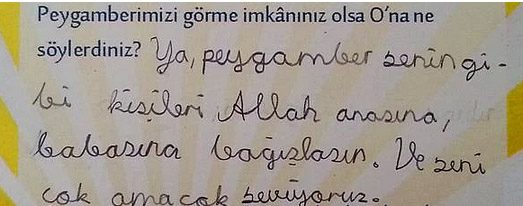 Peygamberimizi görme imkânınız olsa O'na ne
söylerdiniz? Ya, peygamber senin gi-
bi kişileri Allah anasına,
babasına bağışlasın. Ve seni
çok ama çok seviyoruz.